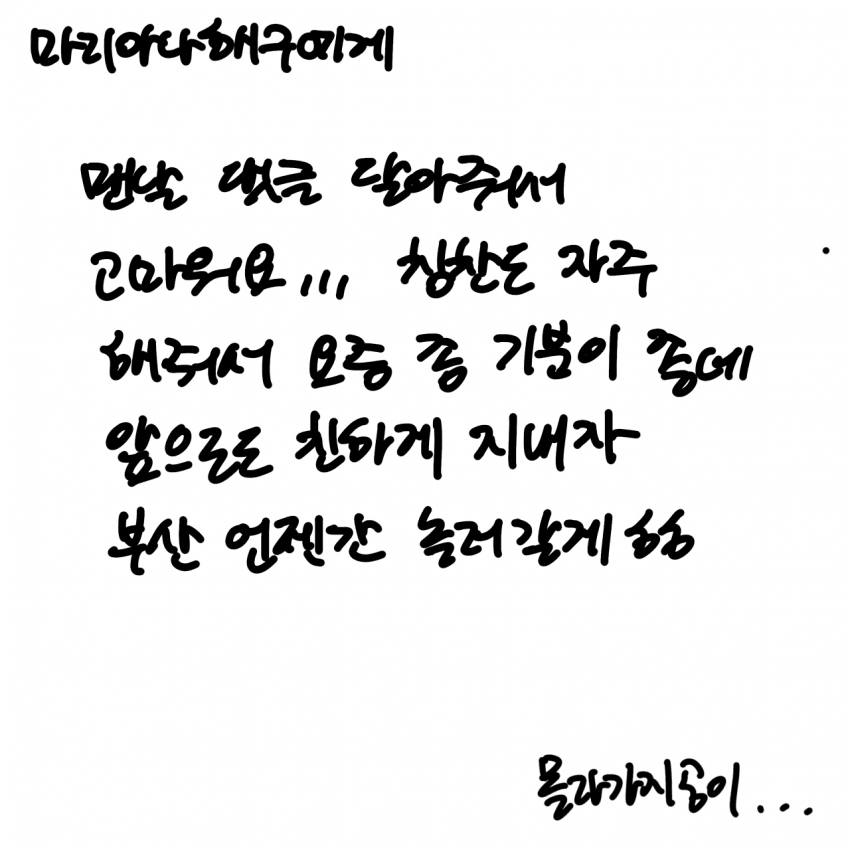 마리아나해구에게
맨날 댓글 달아줘서
고마워요,,, 칭찬도 자주
해줘서 요즘 좀 기분이 좋네
앞으로도 친하게 지내자
부산 언젠간 놀러갈게 ㅎㅎ
몰라가지공이...